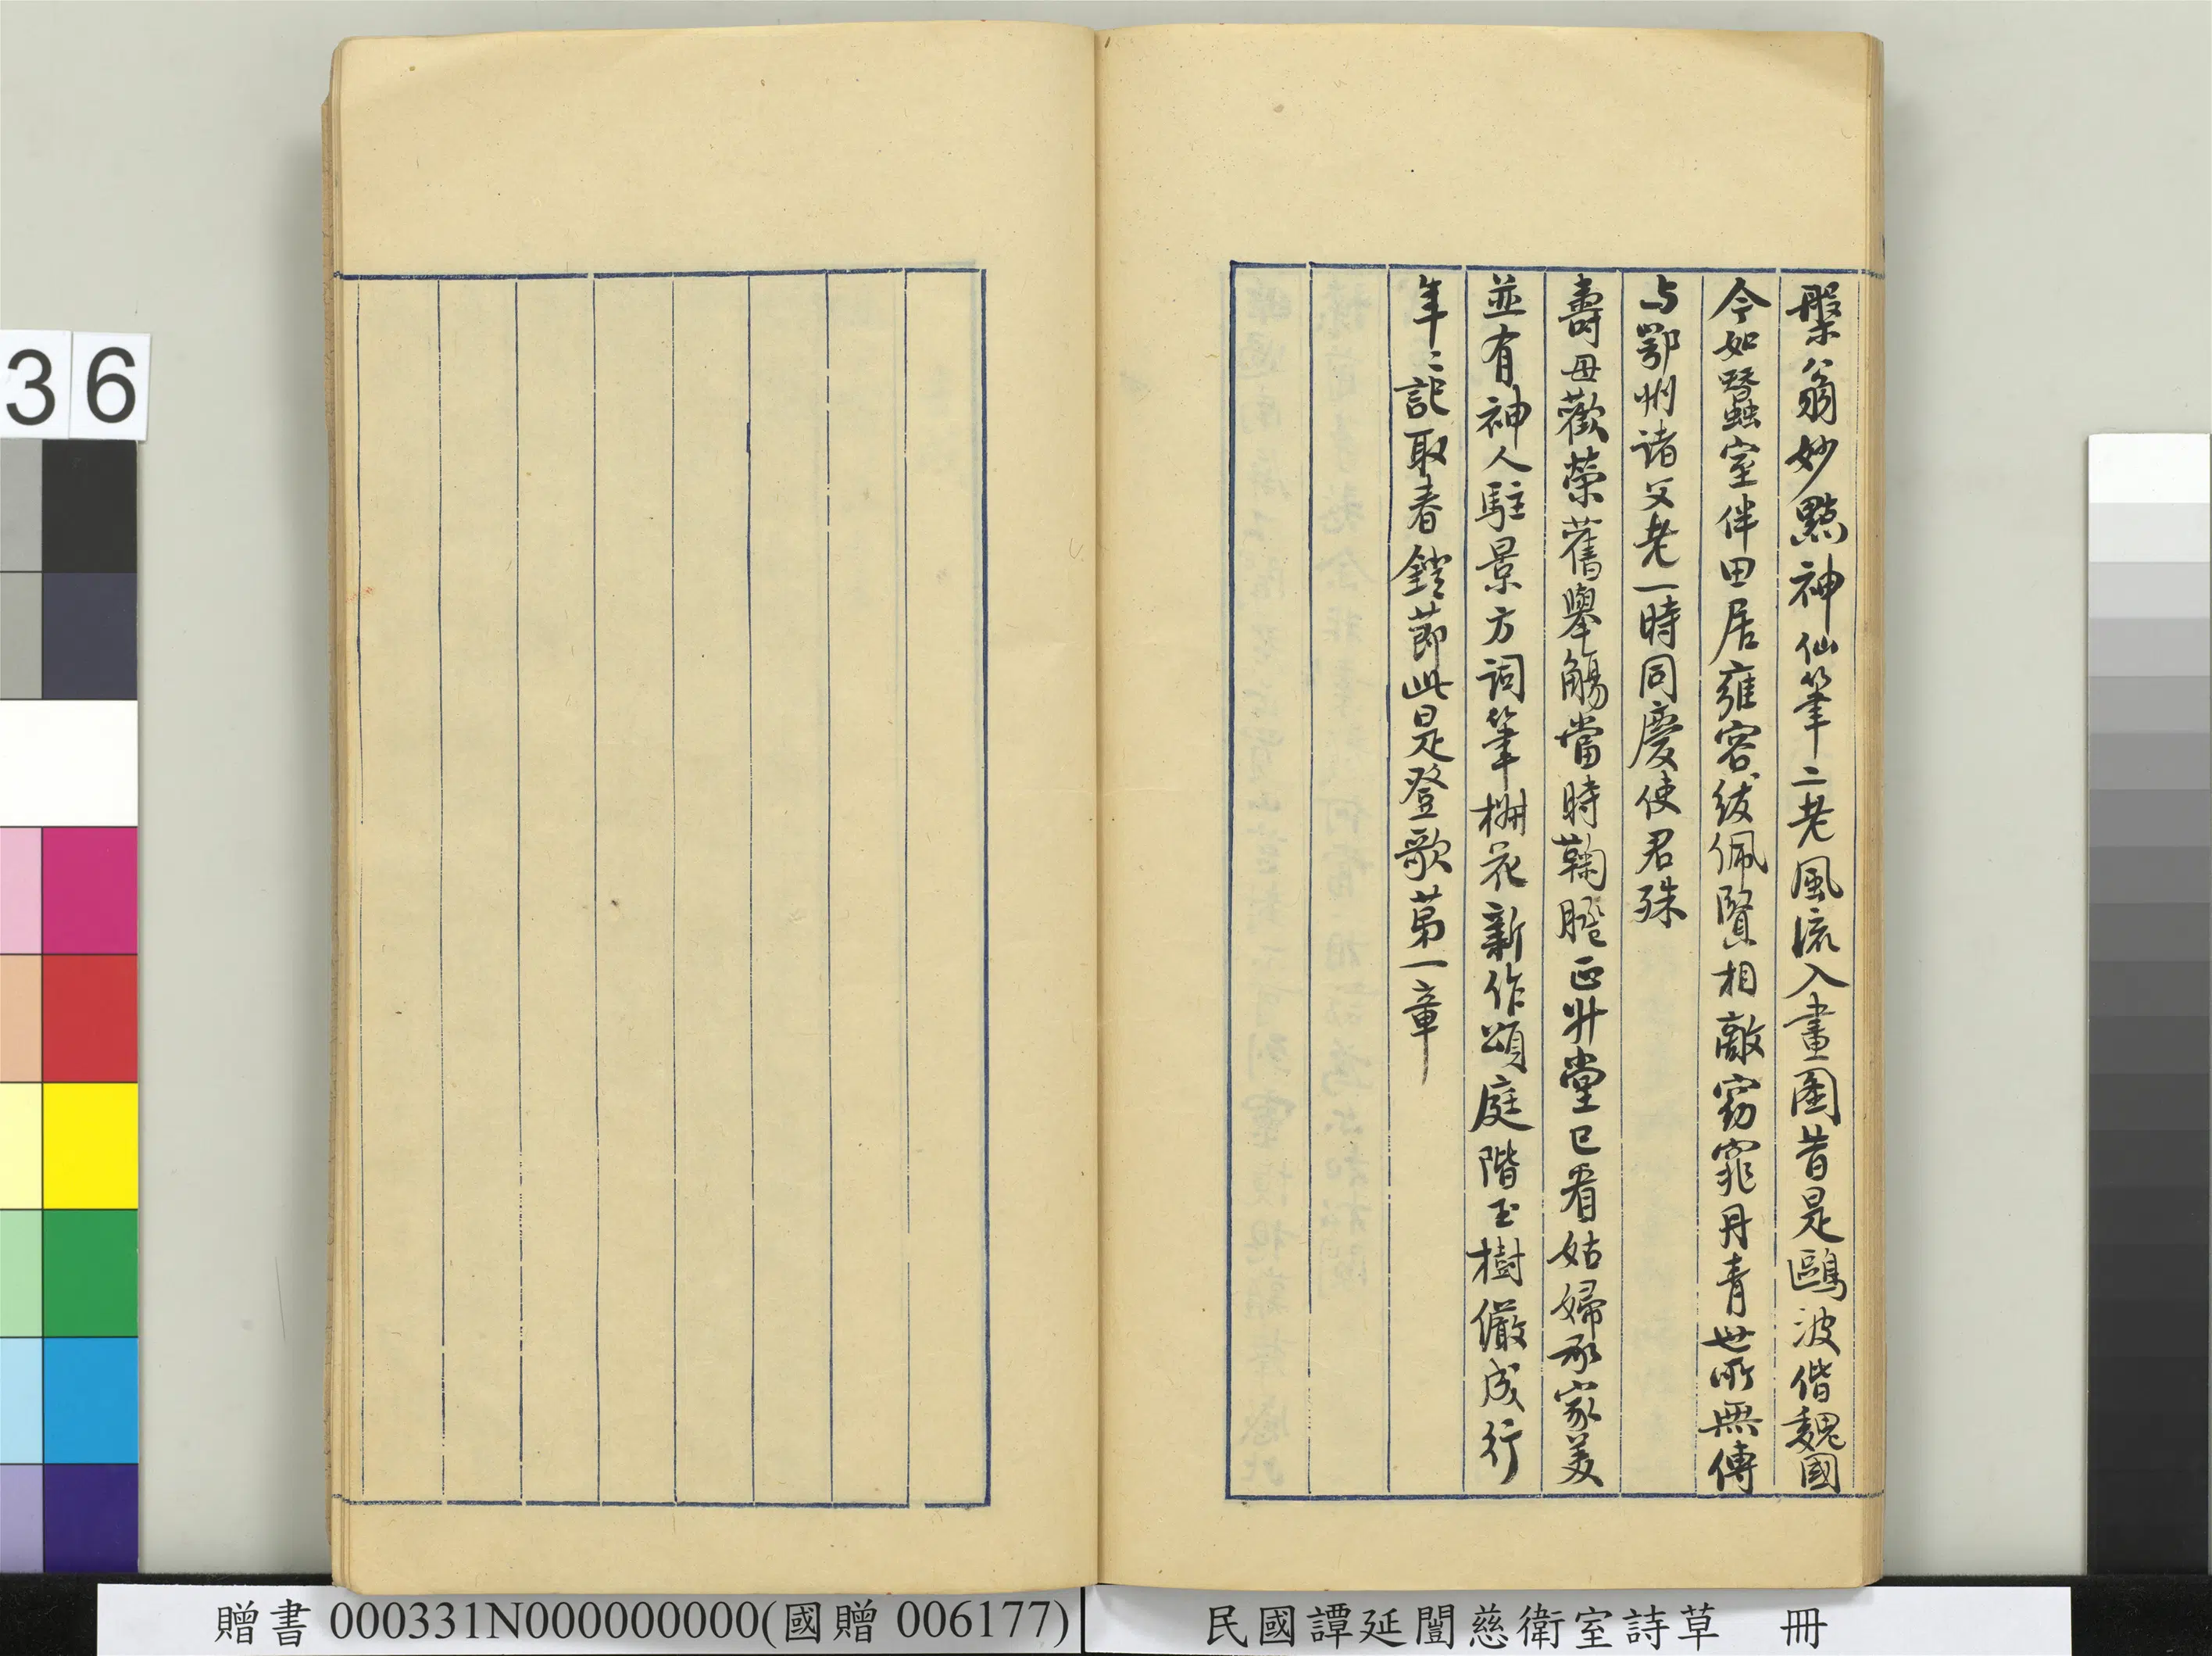 槃翁妙點神仙筆二老風流入畫圖昔是鷗波偕魏國
今如蠶室伴田居雍容紱佩賢相敵窈窕丹青世所無傳
与鄂州諸父老一時同慶使君殊
壽母歡榮舊舉觴當時鞠𦜕正升堂已看姑婦承家美
並有神人駐景方詞筆椒花新作頌庭階玉樹儼成行
年〻記取春鐙節此是登歌苐一章
36
贈書 000331N000000000(國贈 006177)
民國譚延闓慈衛室詩草 冊